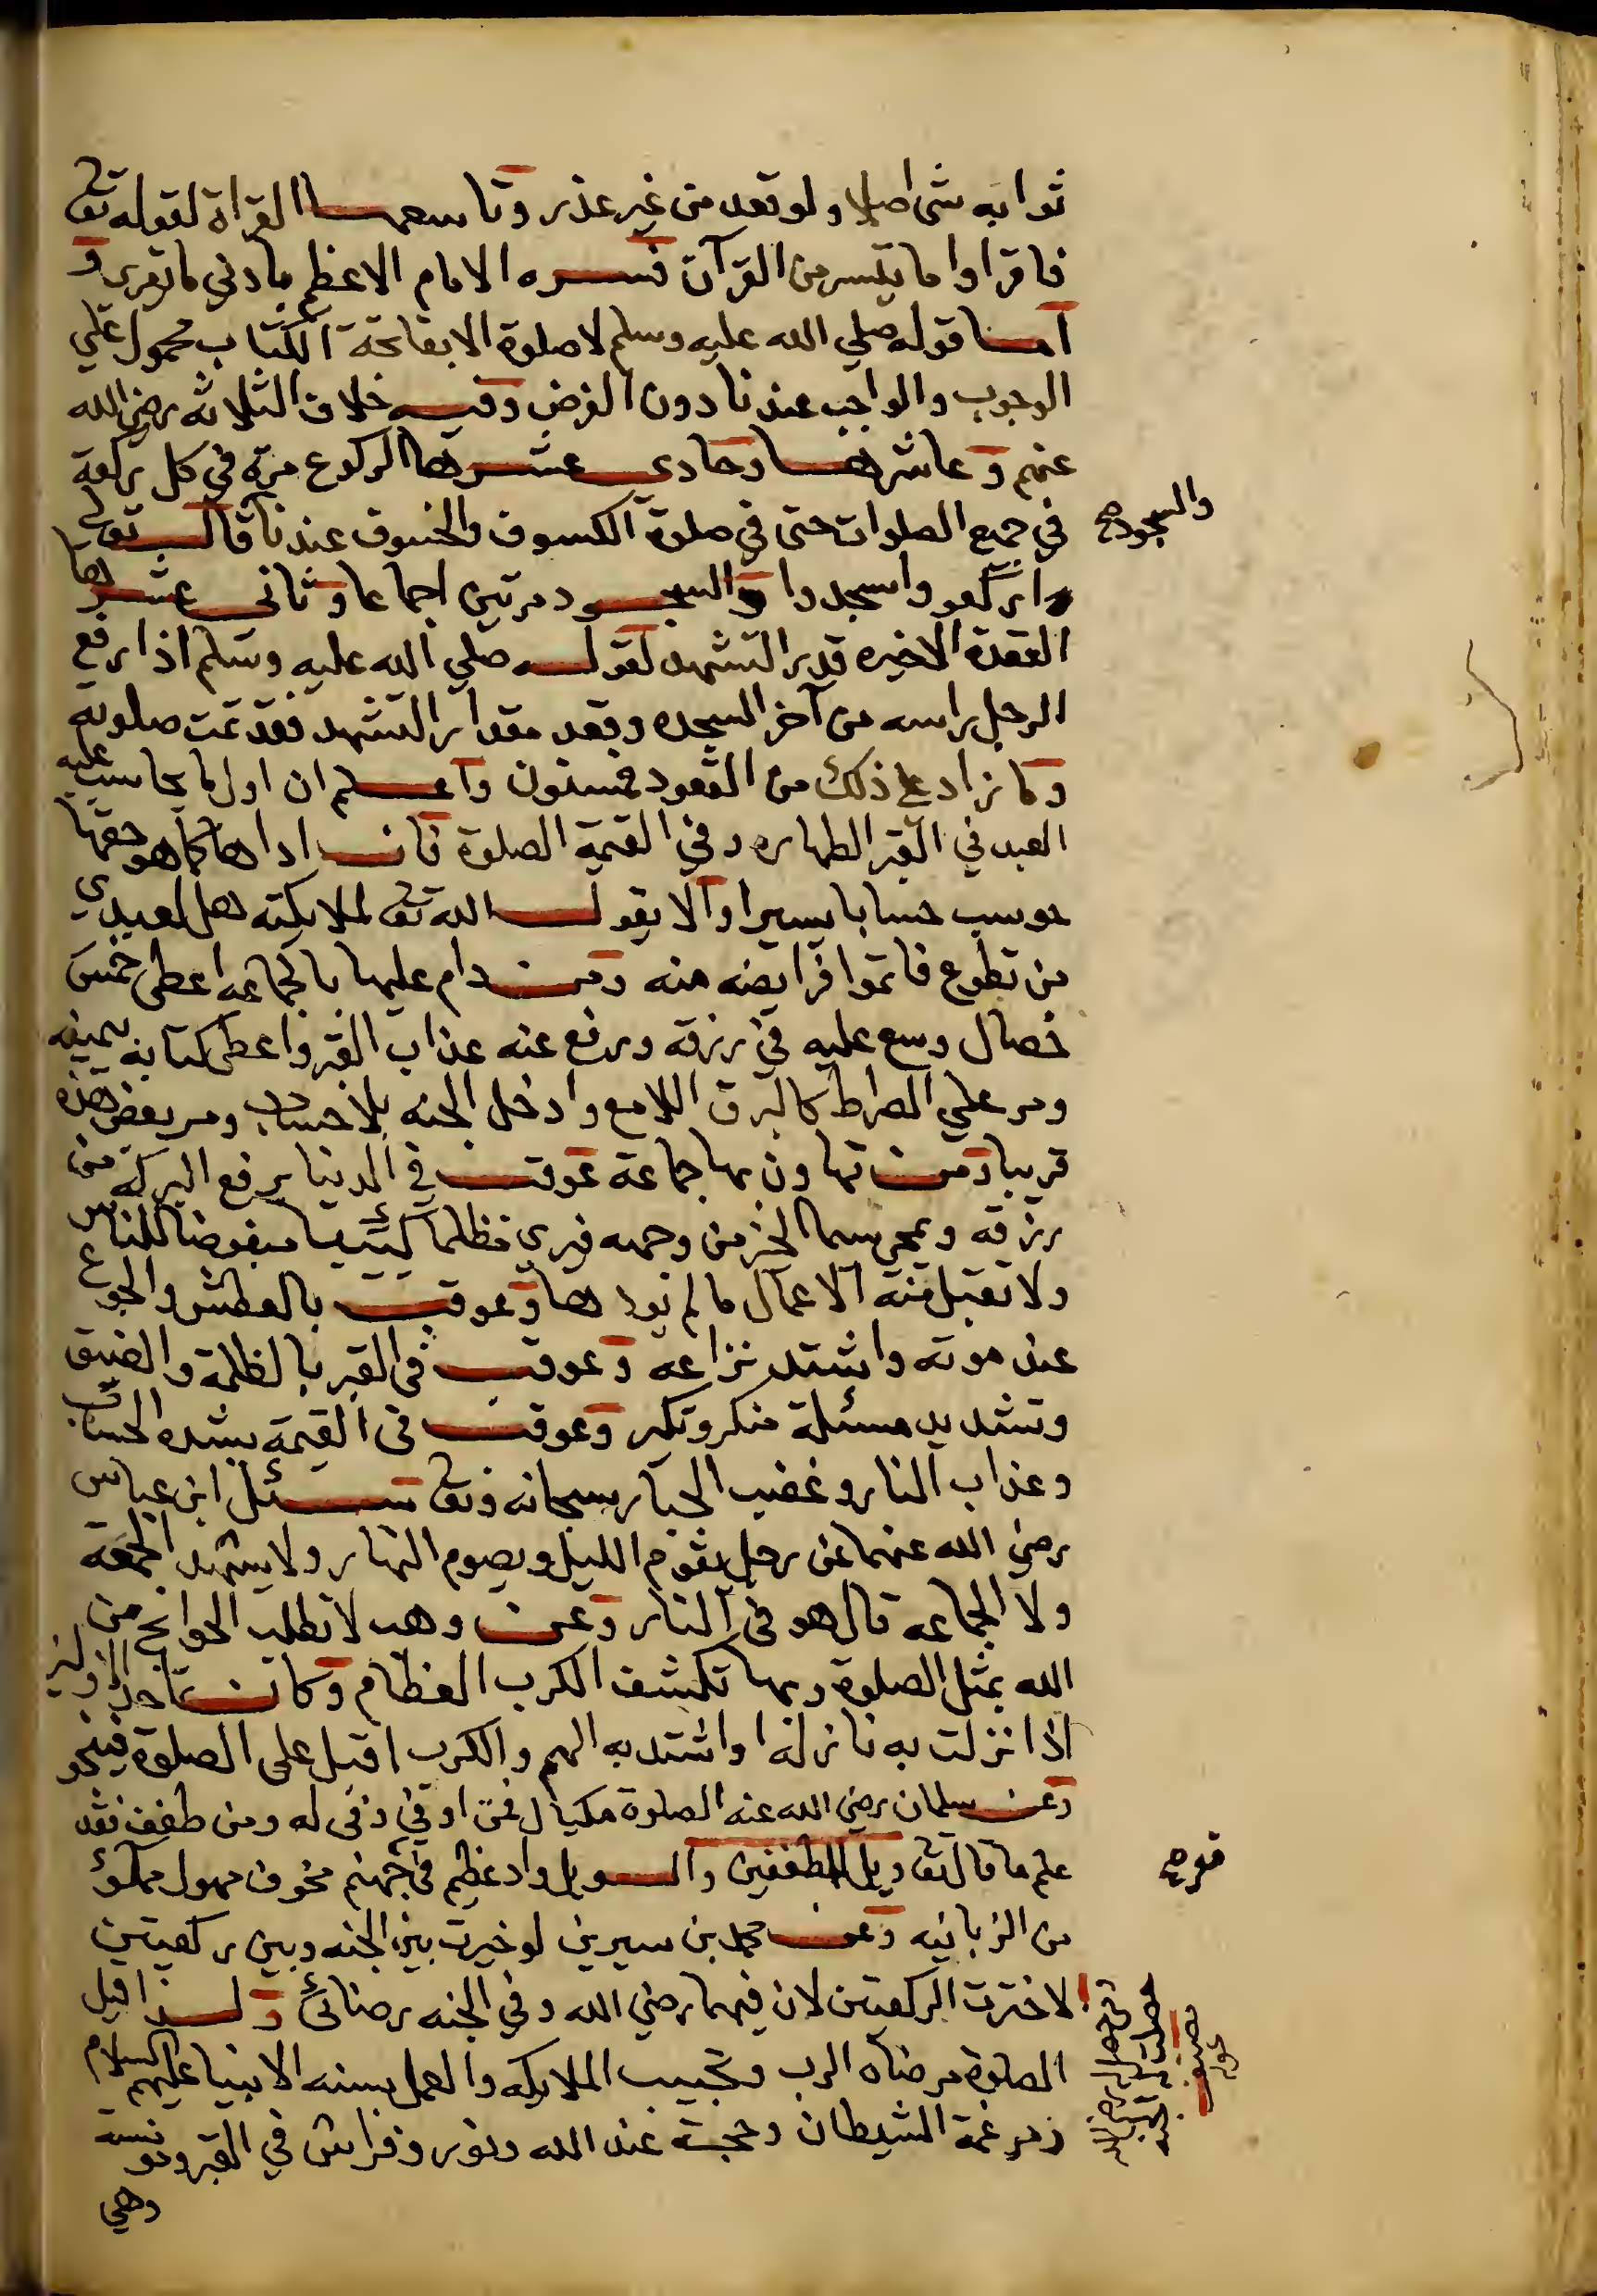 ثوابه شى اصلا ولو قعد من غير عذر وتاسعها القراة لقوله تع
فاقراوا ما تيسر من القرآن فسره الامام الاعظم بادني ما تقرى و
اما قوله صلي الله عليه وسلم لا صلوة الا بفاتحة الكتاب محمول علي
الوجوب والواجب عندنا دون الفرض وفيه خلاف الثلاثه رضي الله
عنهم وعاشرها وحادى عشرها الركوع مرة في كل ركعة
والسجود صح
في جميع الصلوات حتى في صلوة الكسوف والخسوف عندنا قال تعالى
واركعو واسجدوا والسجود مرتين اجماعا وثانى عشرها
القعدة الاخيره قدر التشهد لقوله صلي الله عليه وسلم اذا رفع
الرجل راسه من آخر السجده وقعد مقدار التشهد فقد تمت صلوته
وما زاد علي ذلك من القعود فمسنون واعلم ان اول ما يحاسب عليه
العبد في القبر الطهاره وفي القيمة الصلوة فان اداها كما هو حقها
حوسب حسابا يسيرا والا يقول الله تع لملايكته هل لعبدي
من تطوع فاتموا فرايضه منه ومن دام عليها بالجماعه اعطى خمس
خصال وسع عليه في رزقه ورفع عنه عذاب القبر واعطى كتابه بيمينه
ومر علي الصراط كالبرق اللامع وادخل الجنه بلا حساب وسر بعض هذه
قريبا ومن تهاون بها جماعة عوقب في الدنيا برفع البركة من
رزقه ويمحى سيما الخير من وجهه فيري مظلما كئيبا مبغوضا للناس
ولا تقبل منه الاعمال مالم يودها وعوقب بالعطش والجوع
عند موته واشتد نزاعه وعوقب فى القبر بالظلمة والضيق
وتشديد مسئلة منكر ونكير وعوقب فى القيمة بشده الحساب
وعذاب النار وغضب الجبار سبحانه وتع سئل ابن عباس
رضي الله عنهما عن رجل يقوم الليل ويصوم النهار ولا يشهد الجمعة
ولا الجماعه قال هو في النار وعن وهب لا تطلب الحوائج من
الله بمثل الصلوة وبها تكشف الكرب العظام وكان احد الاولين
اذا نزلت به نازلة او اشتد به الهم والكرب اقبل على الصلوة فينجو
وعن سلمان رضي الله عنه الصلوة مكيال فمن اوفي وفى له ومن طفف فقد
علم ما قال تع ويل للمطففين والويل واد عظيم في جهنم مخوف مهول مملوء
من الزبانيه وعن محمد بن سيرين لو خيرت بين الجنه وبين ركعتين
لاخترت الركعتين لان فيهما رضي الله وفي الجنه رضائى ولذا قيل
الصلوة مرضاة الرب وتحبيب الملايكه والعمل بسنه الانبيا عليهم السلام
ومرغمة الشيطان وحجة عند الله ونور وفراش في القبر ومونسة
وهي